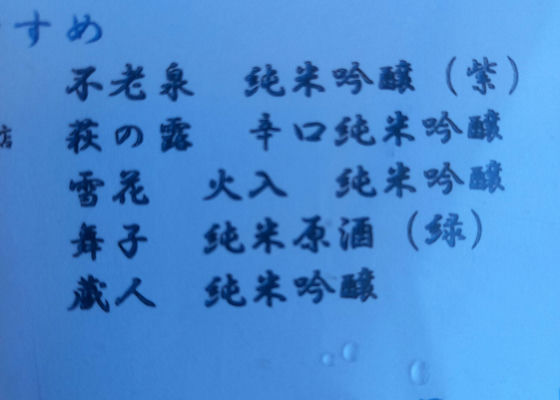 すめ
不老泉 純米吟醸（紫）
萩の露 辛口純米吟醸
雪花 火入 純米吟醸
舞子 純米原酒（緑）
蔵人 純米吟醸
店